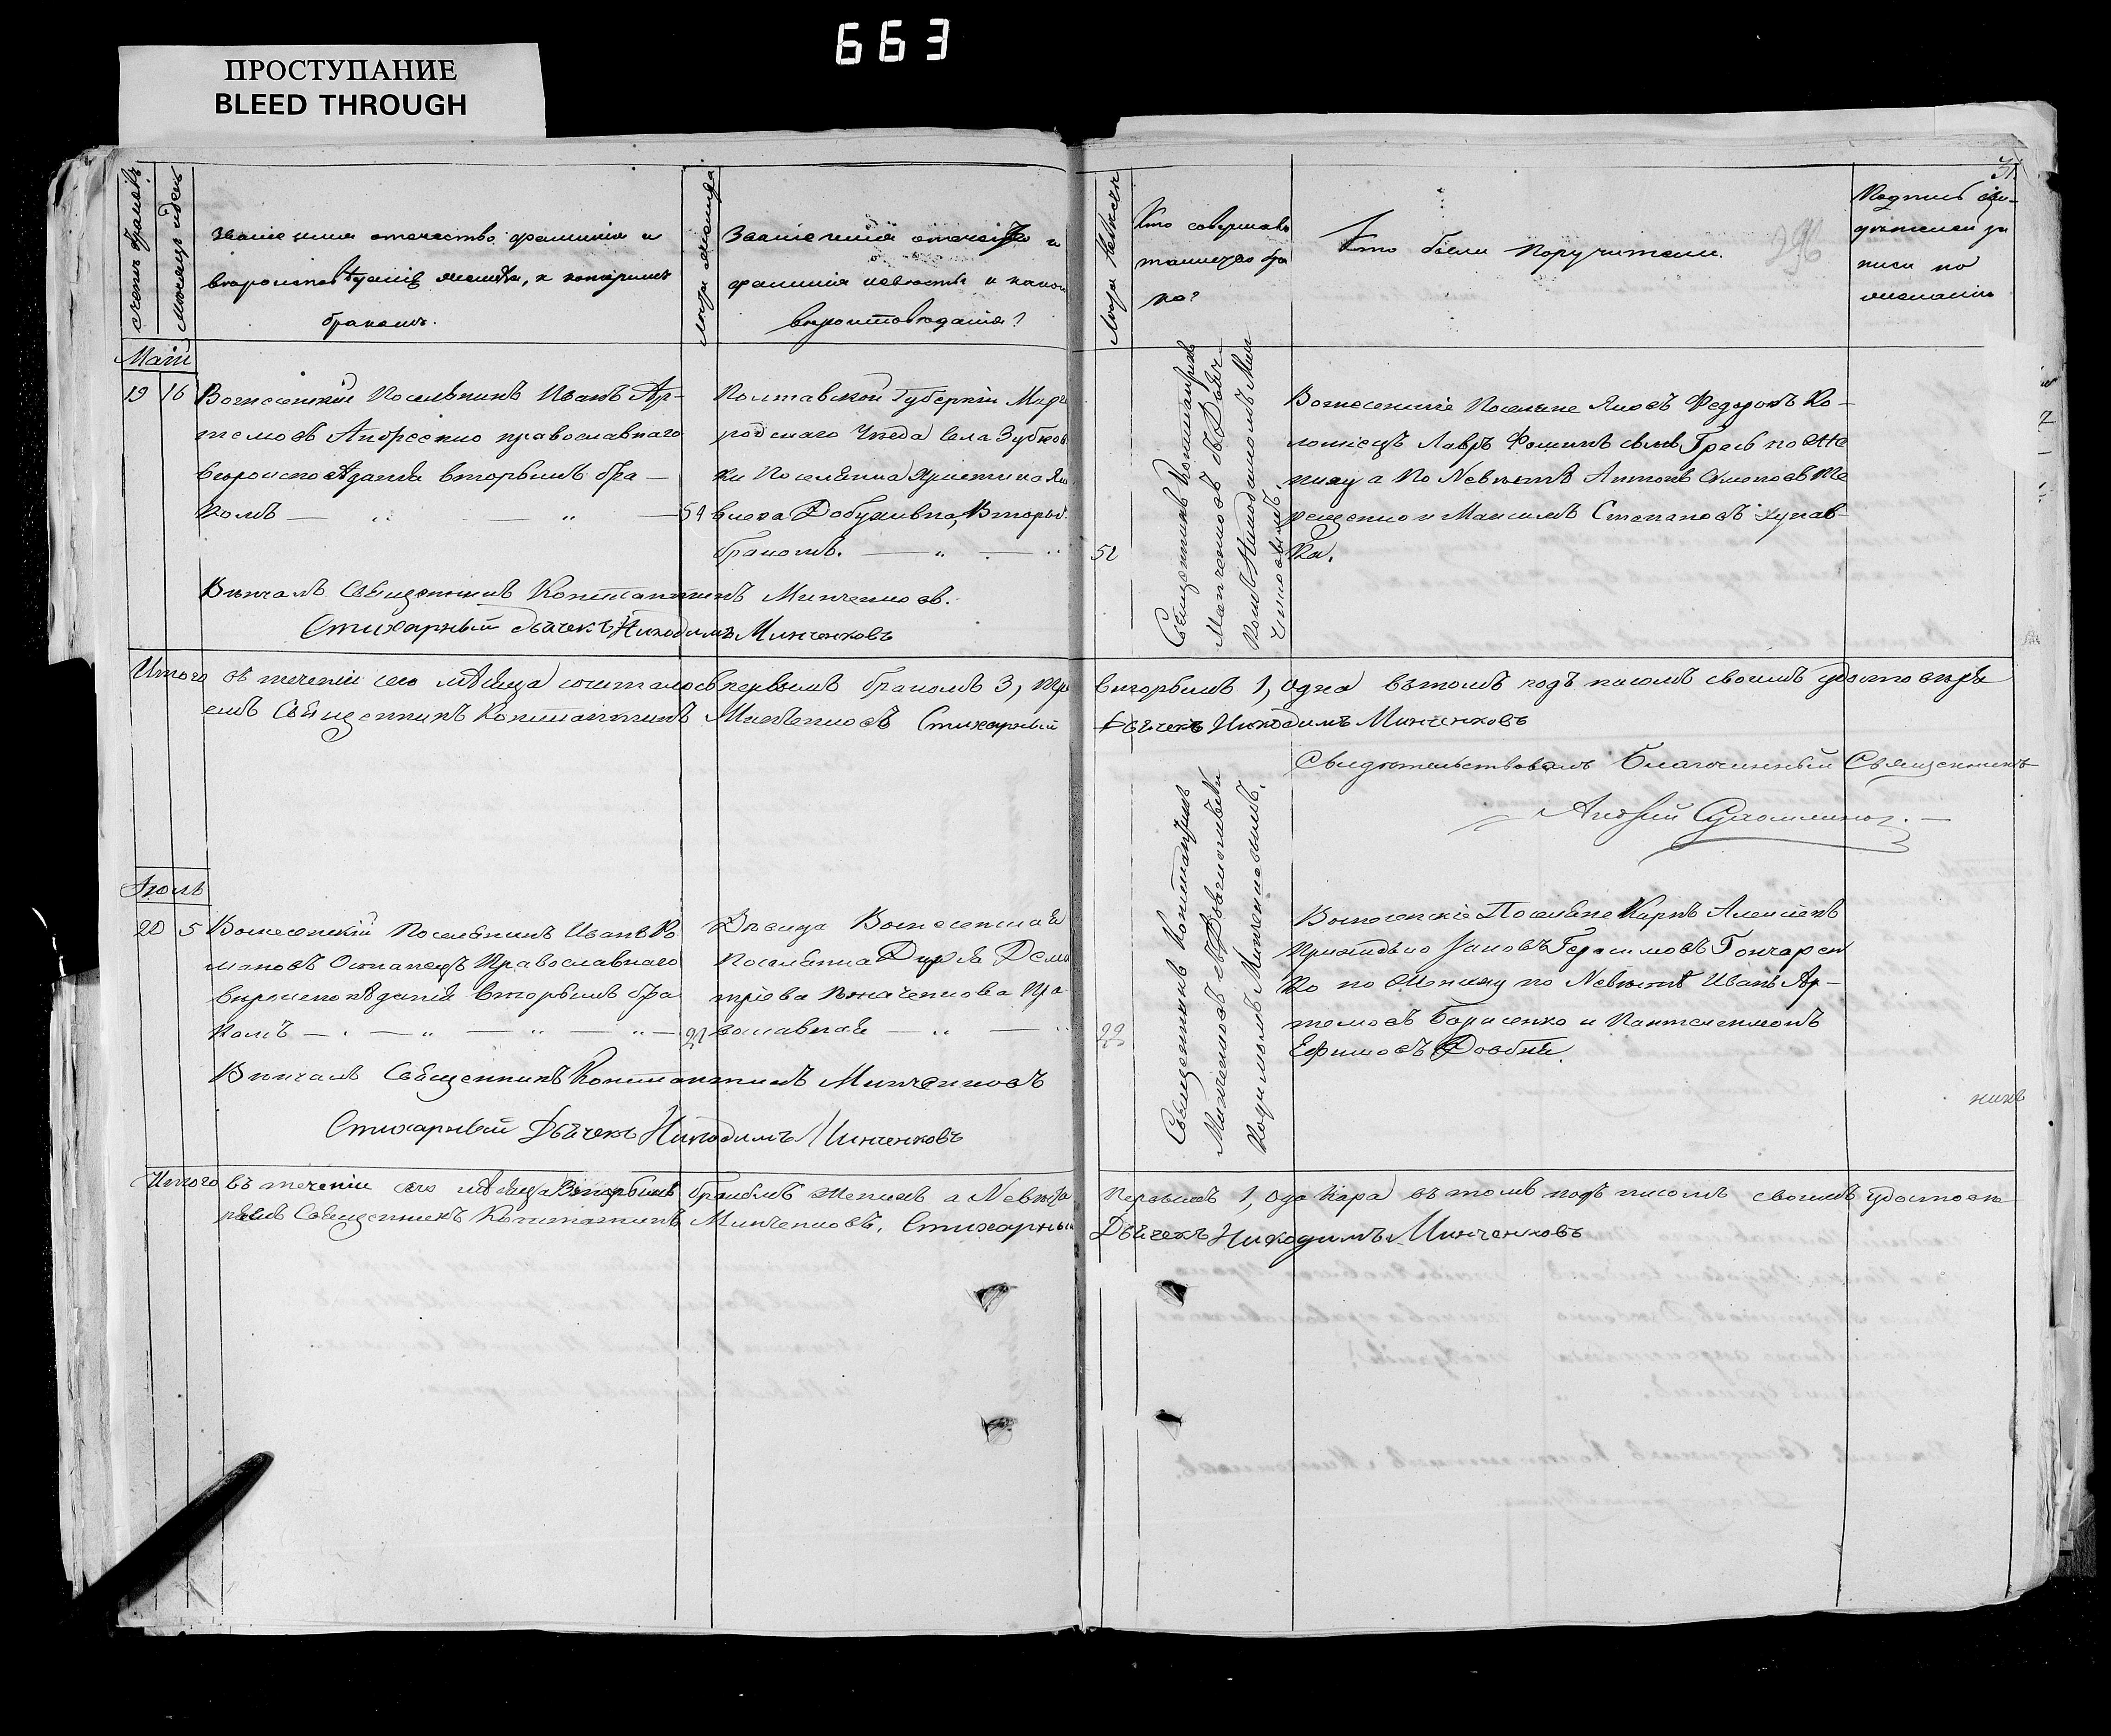 663
ПРОСТУПАНИЕ
BLEED THROUGH
31.
296
счетъ браковъ
мѣсяцъ и день
Званіе имя отечество фамилія и
вѣроисповѣданіе жениха, и которымъ
бракомъ.
лѣта жениха
Званіе имя отечество и
фамилія невѣсты и какого
вѣроисповѣданія?
Лѣта невѣсты
Кто совершалъ
таинство бра
ка?
Кто были поручители.
Подпись сви-
дѣтелей за
писи по
желанію
Маій
19 16
Вознесенскій Поселянинъ Иванъ Ар-
темовъ Андреенко православнаго
вѣроисповѣданія вторымъ бра-
комъ
54
Полтавской Губерніи Мирго
родскаго Уезда Села Зубков
ки Поселянка Христина
Вторым
бракомъ.
52
Священникъ Константинъ
Минченковъ съ Дьяч-
комъ Никодимомъ Мин
ченковымъ.
Вознесенские Поселяне Яковъ Федоровъ Ко-
ломіецъ Лавръ Фоминъ сынъ Гресь по Же
ниху а По Невѣстѣ Антонъ Симоновъ Те
рещенко и Максимъ Степановъ
ка.
Вѣнчалъ Священникъ Константинъ Минченковъ.
Стихарный дьячекъ Никодимъ Минченковъ
Итого въ теченіи сего мѣсяца сочеталось первымъ бракомъ 3, вторымъ 1, одна въ томъ подъ писомъ своимъ удостовѣря
емъ Священникъ Константинъ Минченковъ Стихарный Дьячекъ Никодимъ Минченковъ
Свидѣтельствовалъ Благочинный Священникъ
Іюль
20 5
Вознесенскій Поселянинъ Иванъ Ро
мановъ Остапецъ Православнаго
вѣроисповѣданія вторымъ бра
комъ
Вдовица Вознесенская
Поселянка Дарья Дими
тріева Ткаченкова Пра
вославная
22
Священникъ Константинъ
Минченковъ съ Дьячкомъ Ни
кодимомъ Минченковымъ.
Вознесенскіе Поселяне Карпъ Алексѣевъ
Герасимовъ Гончарен
ко по Жениху по Невѣстѣ Иванъ Ар-
темовъ Борисенко и Пантелеимонъ
Ефимовъ Довбня.
Вѣнчалъ Священникъ Константинъ Минченковъ
Стихарный Дьячекъ Никодимъ Минченковъ
Итого въ теченіи сего мѣсяца вторымъ бракомъ женихъ а Невѣста Первымъ 1, одна пара въ томъ подъ писомъ своимъ удостовѣ
ряемъ Священникъ Константинъ Минченковъ, Стихарный Дьячекъ Никодимъ Минченковъ